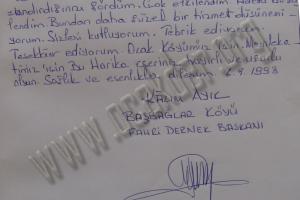 sandindiğinı gördüm. Çok etkilendim.
lendim Bundan daha güzel bir hizmet düşünemi-
yorum. Sizleri kutluyorum. Tebrik ediyorum
Teşekkür ediyorum. Ocak Köyümüz için Memleke-
timiz için Bu Harika eseriniz hayırlı ve uğurlu
olsun. Sağlık ve esenlikle dilerim 6.9.1998
KÂZIM AYIK
BAŞBAĞLAR KÖYÜ
FAHRİ DERNEK BAŞKANI